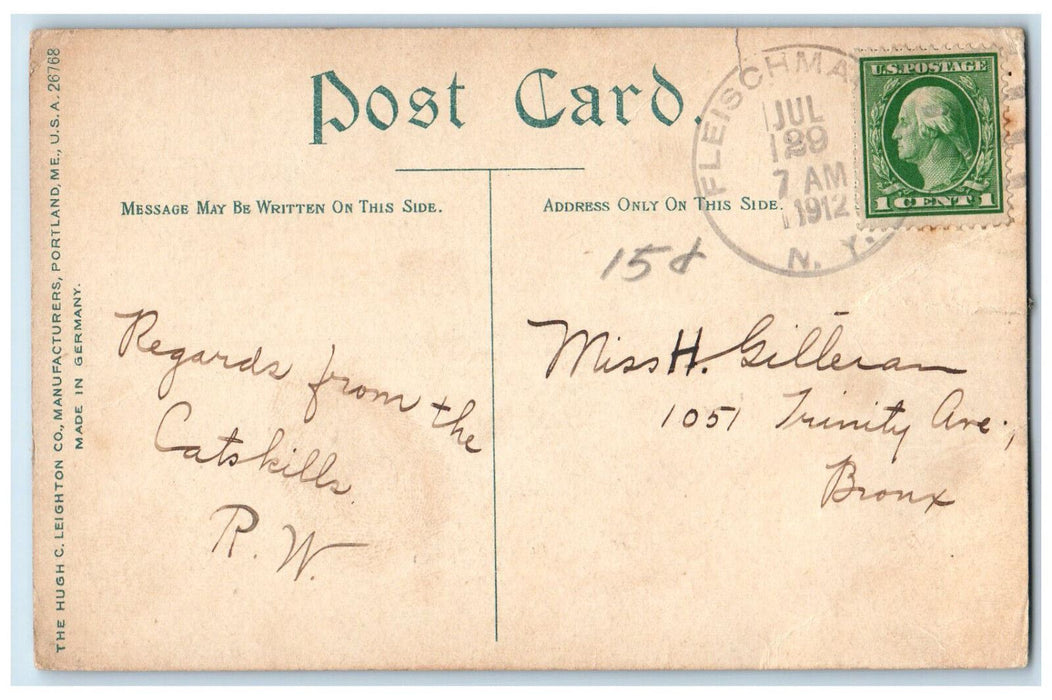 Post Card.
MESSAGE MAY BE WRITTEN ON THIS SIDE.
ADDRESS ONLY ON THIS SIDE.
FLEISCHMA
JUL
29
7 AM
1912
N. Y.
U.S. POSTAGE
1 CENT 1
15¢
Regards from the
Catskills
R. W.
Miss H. Gilleran
1051 Trinity Ave.,
Bronx
THE HUGH C. LEIGHTON CO., MANUFACTURERS, PORTLAND, ME., U.S.A. 26768
MADE IN GERMANY.